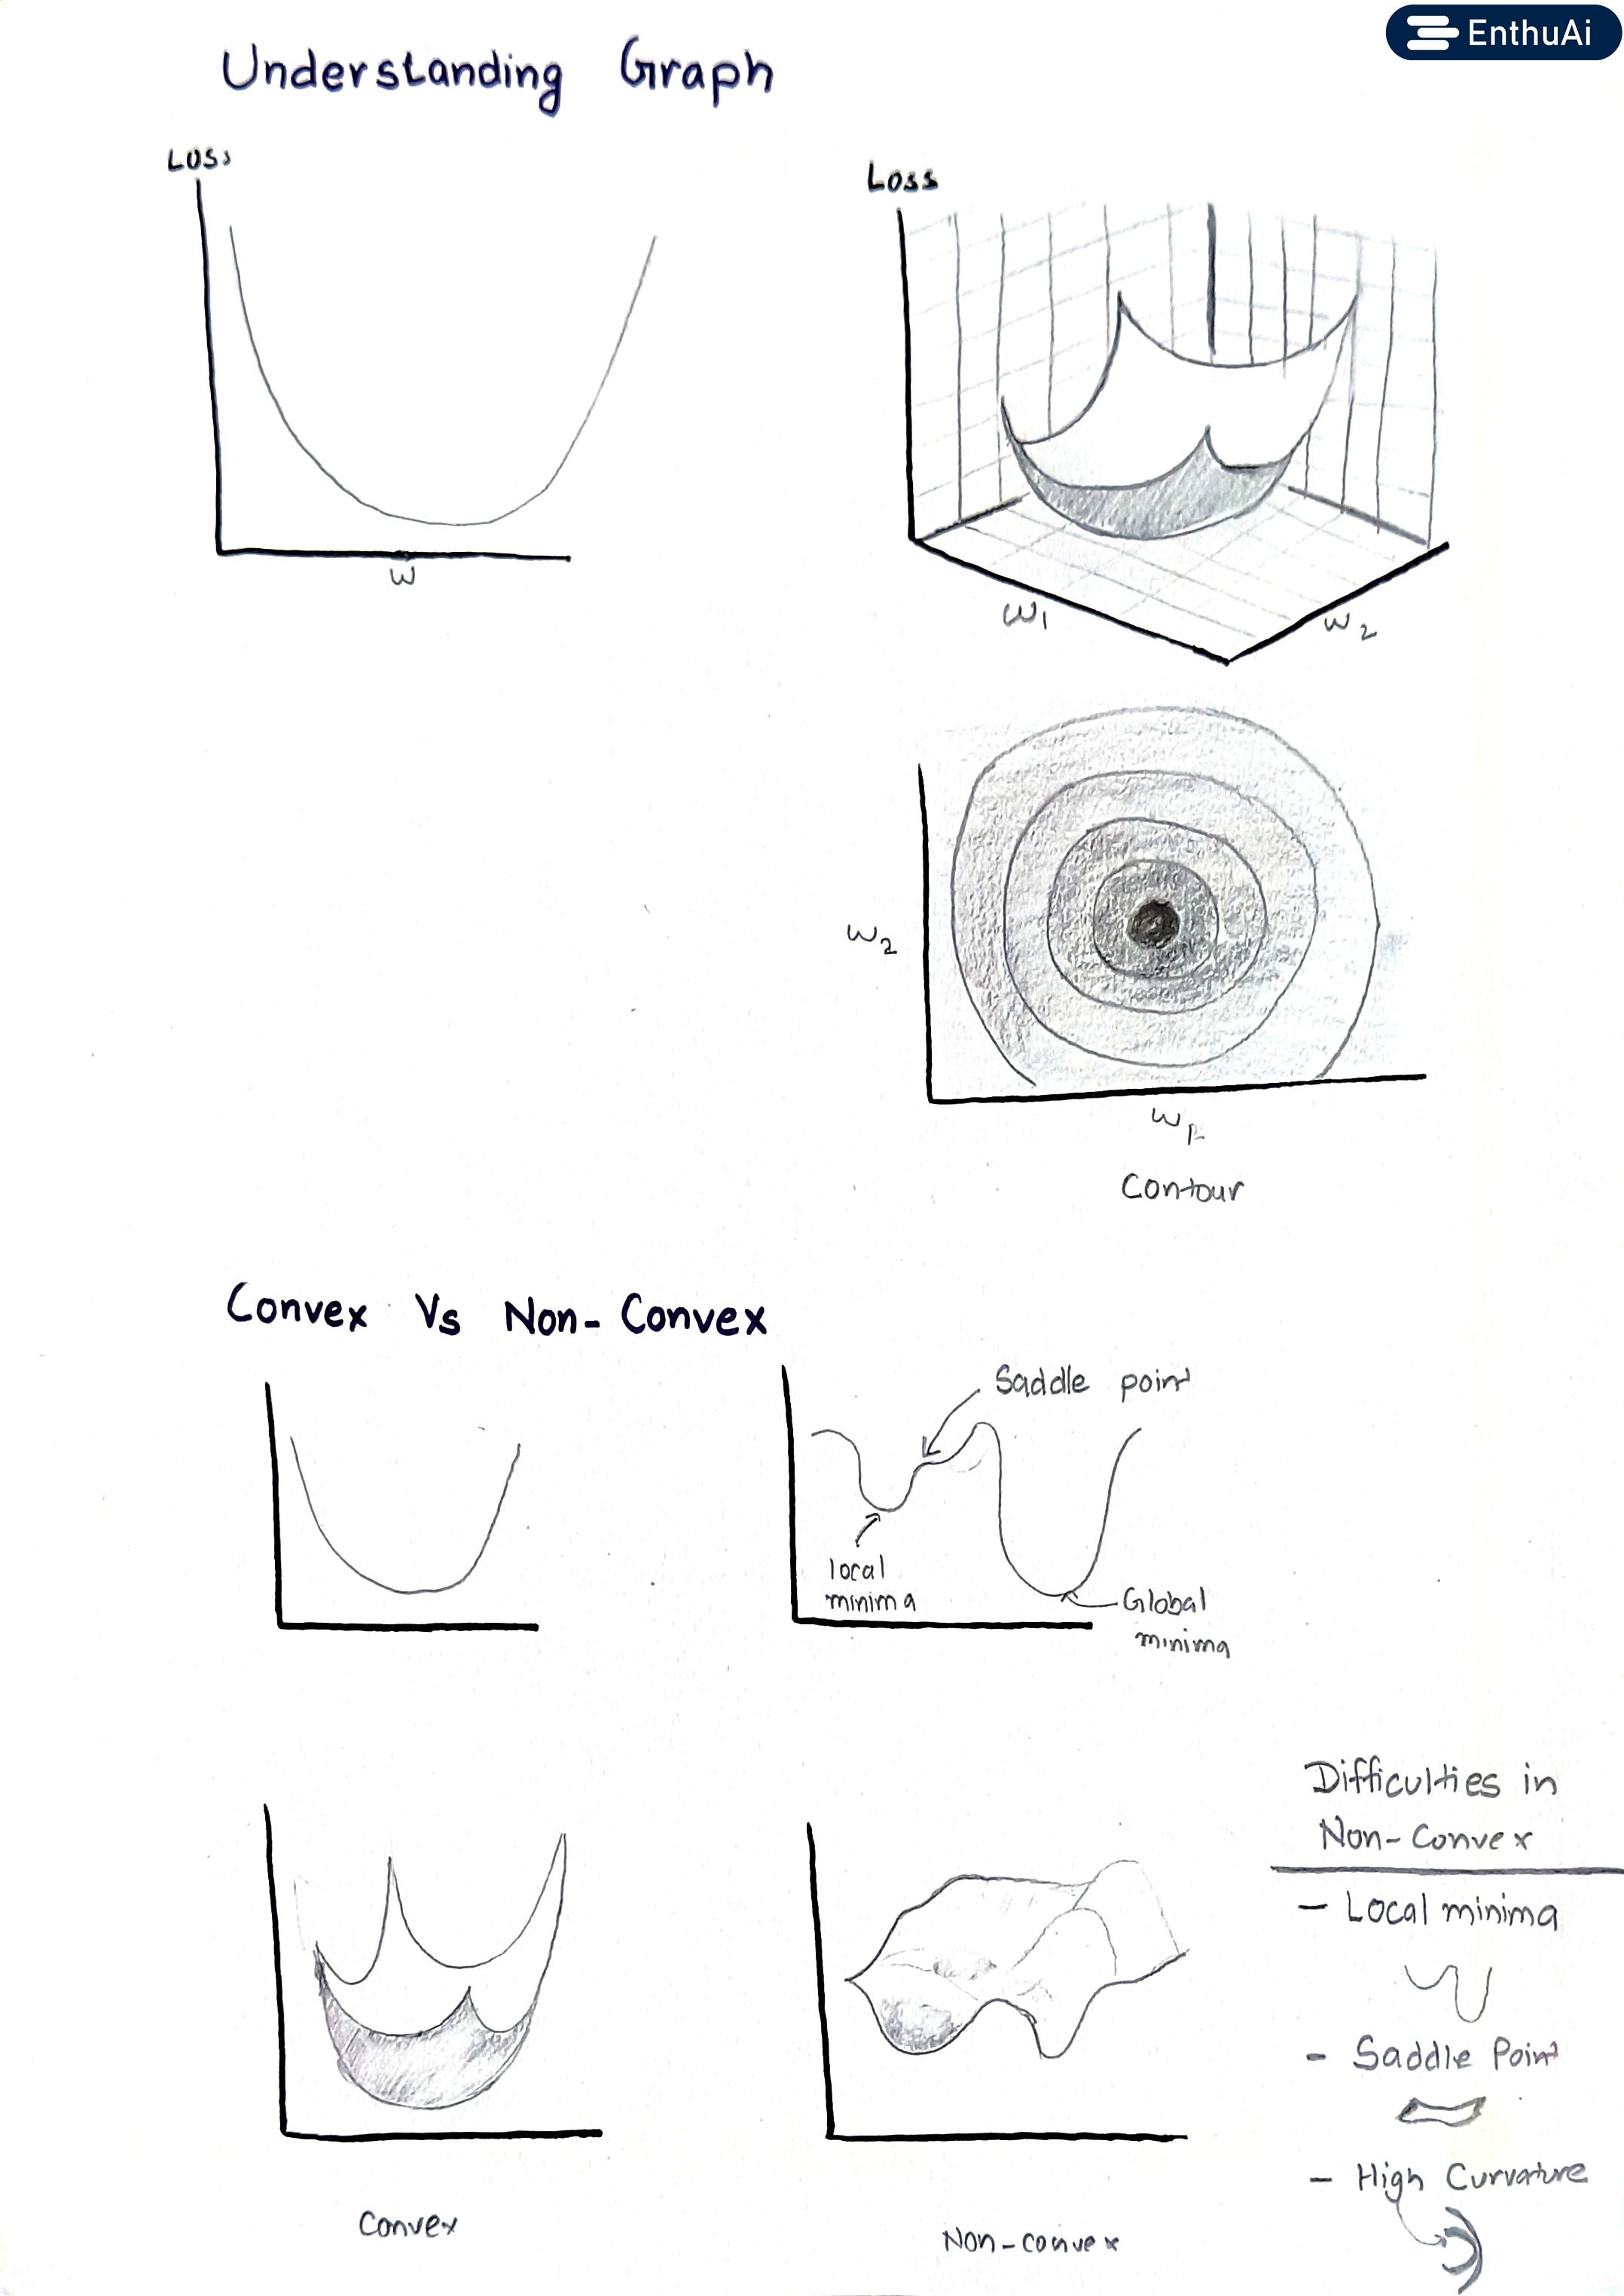 EnthuAi
Understanding Graph
Loss
Loss
w
w1
w2
w2
Contour
Convex Vs Non-Convex
Saddle point
local
minima
Global
minima
Difficulties in
Non-Convex
- Local minima
- Saddle Point
- High Curvature
Convex
Non-convex